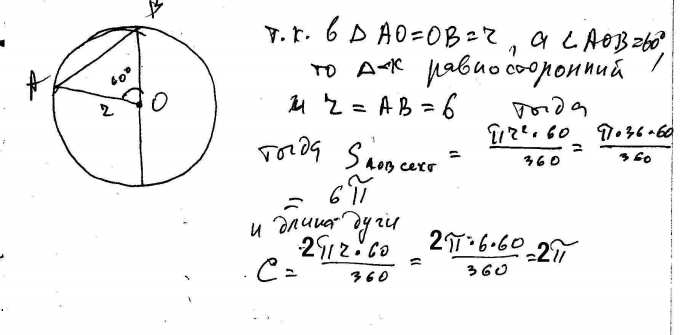 B
A
60°
r
O
т.к. в Δ AO=OB=r, а ∠AOB=60°,
то Δ-к равносторонний
и r = AB = 6 тогда
тогда S AOB сект = πr²·60/360 = π·36·60/360
= 6π
и длина дуги
C = 2πr·60/360 = 2π·6·60/360 = 2π